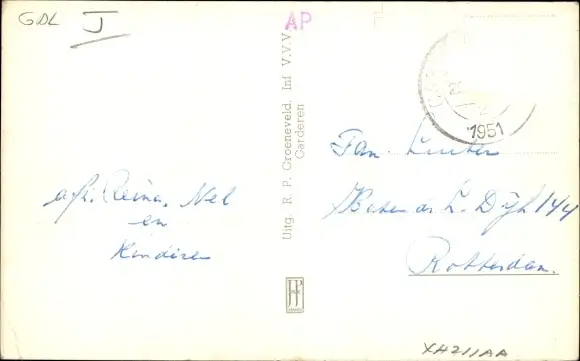 GDL J
AP
1951
Uitg R. P. Groeneveld. Inf V.V.V.
Garderen
afz. Reina. Nel
en
Kinderen
Fam.
Dijk 144
Rotterdam.
XH211AA